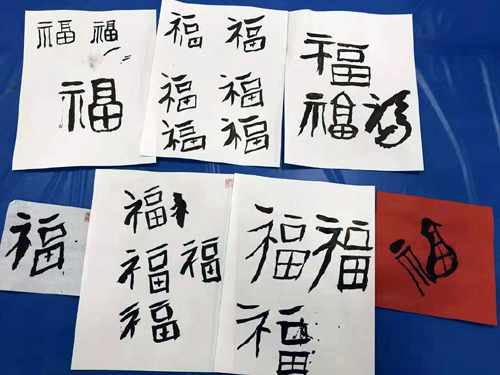 福 福
福
福 福
福 福
福 福
福
福 福
福
福
福 福
福
福 福
福
福